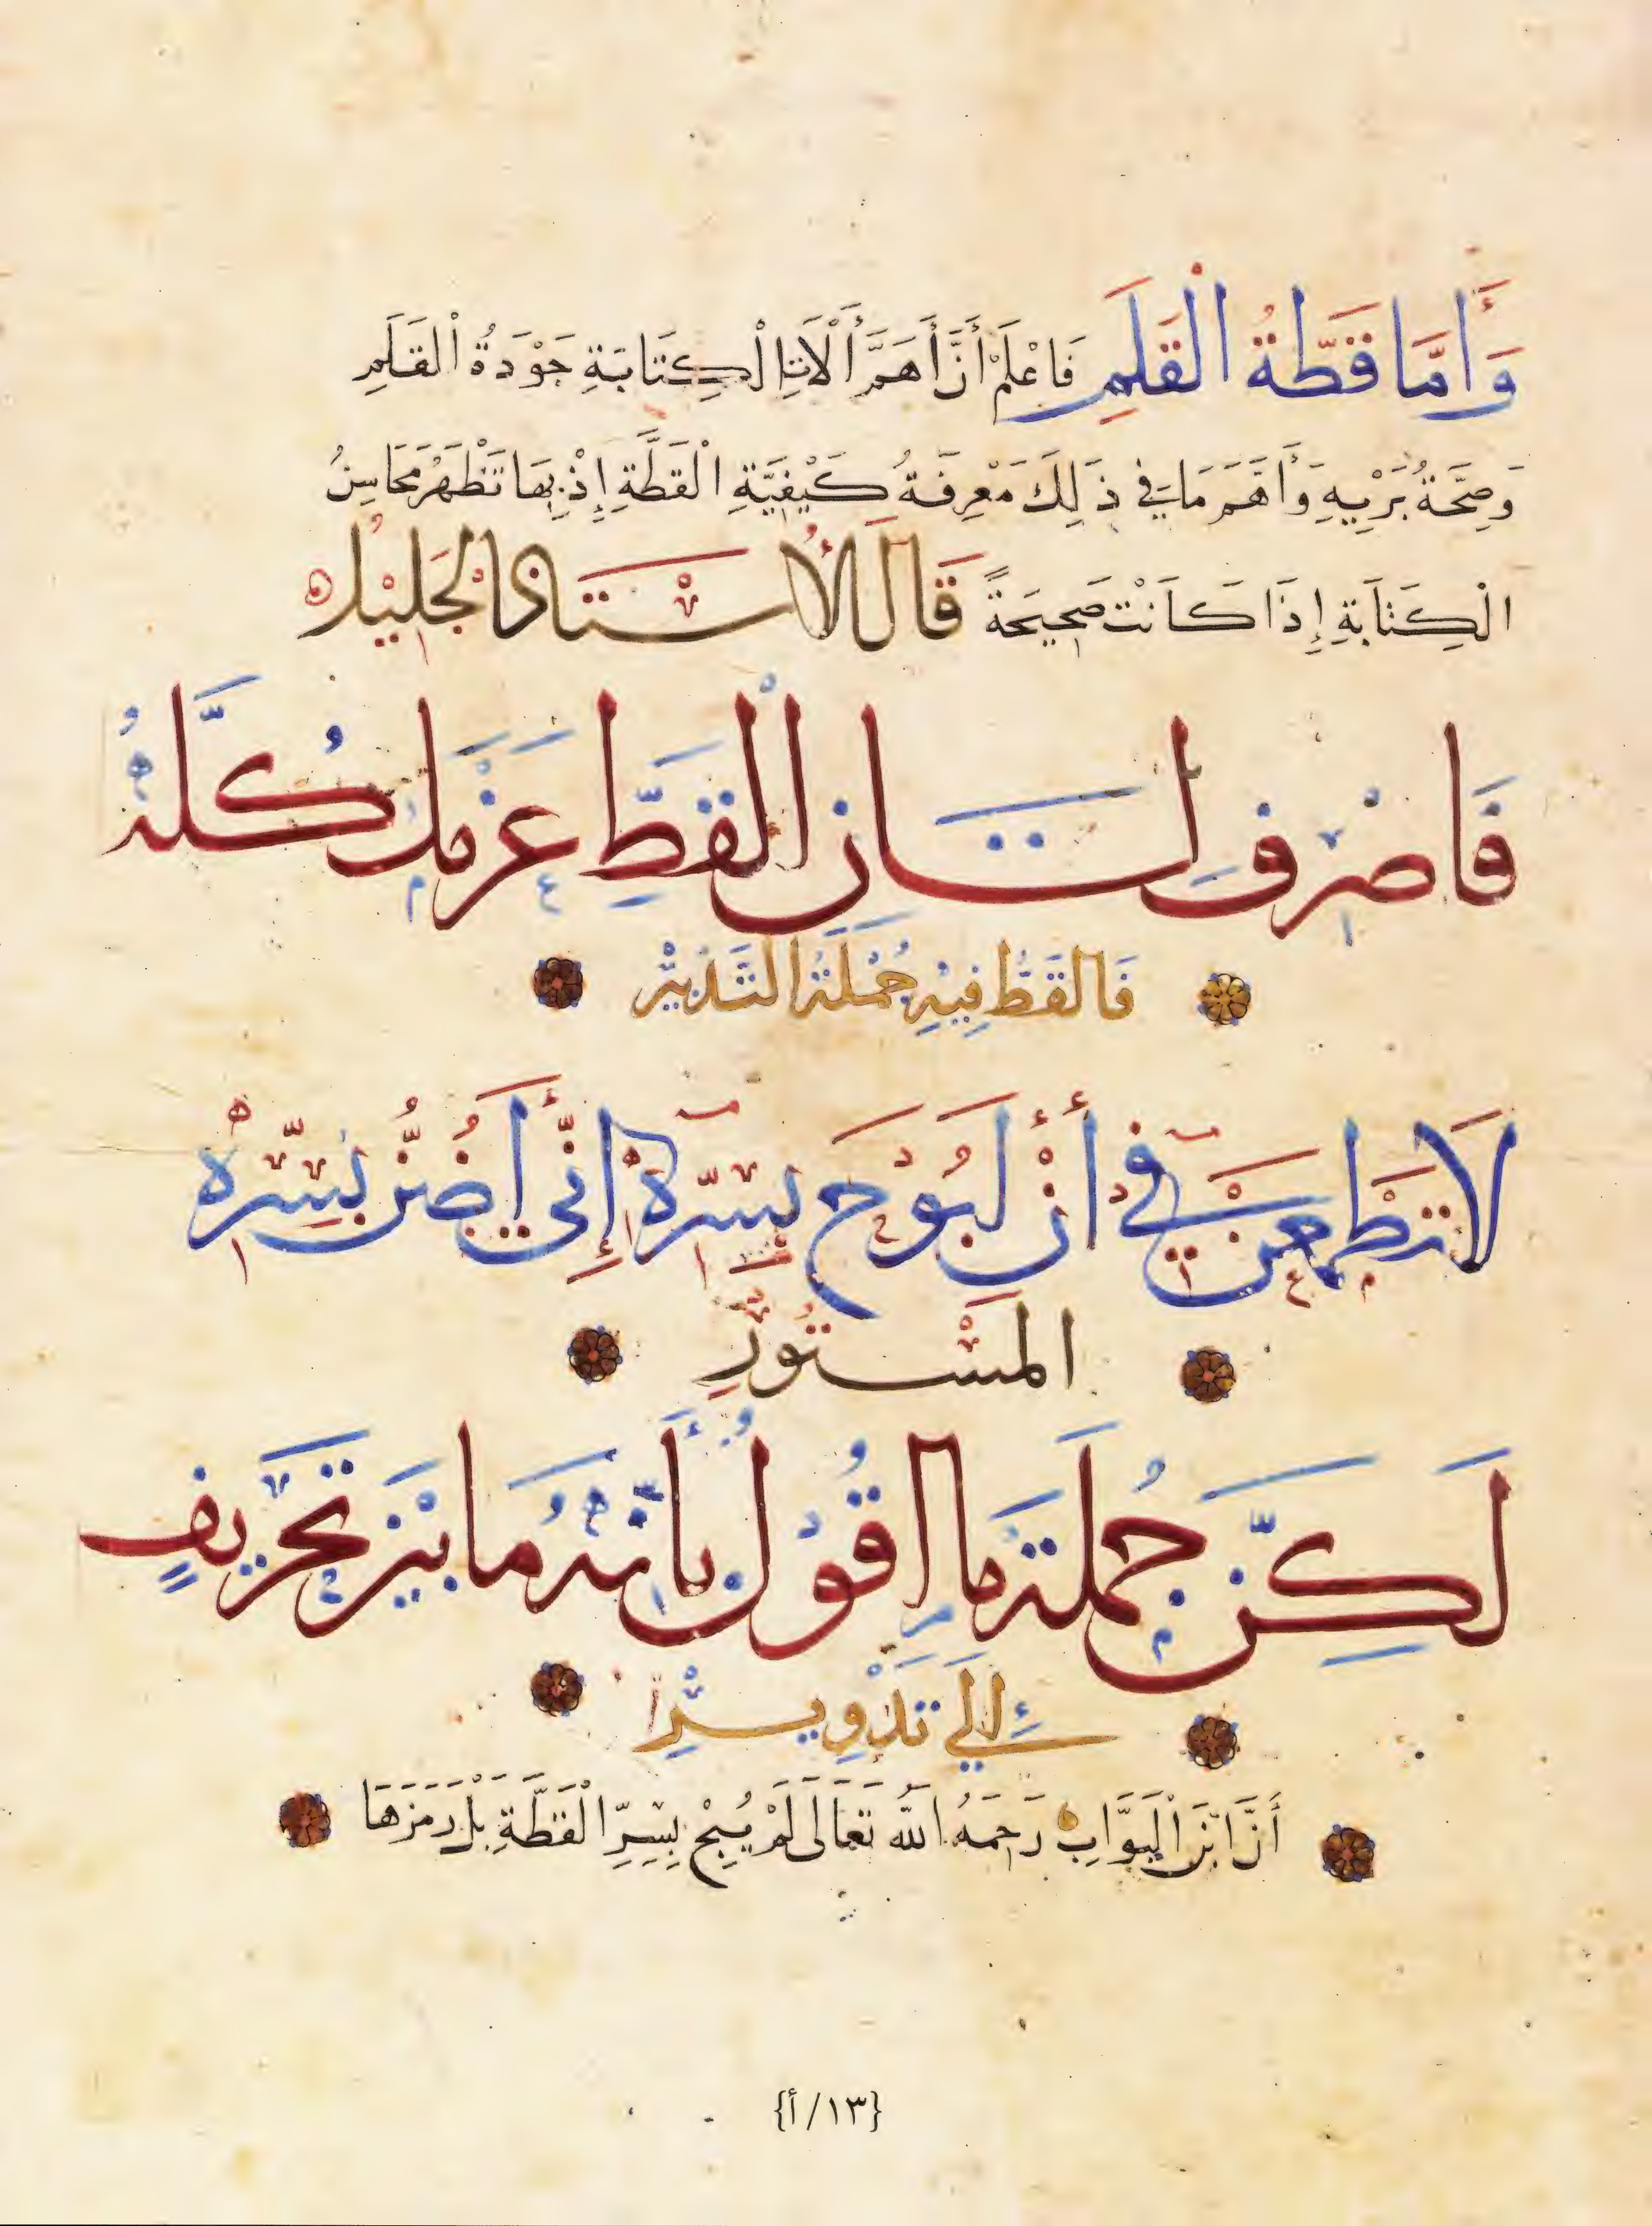 وَأَمَّا قَطَّةُ الْقَلَمِ فَاعْلَمْ أَنَّ أَهَمَّ أَلْاتِ الْكِتَابَةِ جَوْدَةُ الْقَلَمِ
وَصِحَّةُ بَرْيِهِ وَأَهَمَّ مَا فِي ذَلِكَ مَعْرِفَةُ كَيْفِيَّةِ الْقَطَّةِ إِذْ بِهَا تَظْهَرُ مَحَاسِنُ
الْكِتَابَةِ إِذَا كَانَتْ صَحِيحَةً قَالَ الْأُسْتَاذُ الْجَلِيْلُ
فَاصْرِفْ لِسَانَ الْقَطِّ عَزْمَكَ كُلَّهُ
فَالْقَطُّ فِيْهِ جُمْلَةُ التَّدْبِيْرِ
لَا تَطْمَعَنْ فِي أَنْ لَبُوْحَ بِسِرِّهِ إِنِّي أَضُنُّ بِسِرِّهِ
الْمَسْتُوْرِ
لَكِنَّ جُمْلَةَ مَا اقُوْلُ بِأَنَّهُ مَا بَيْنَ تَحْرِيفٍ
إِلَى تَدْوِيْرِ
أَنَّ ابْنَ الْبَوَّابِ رَحِمَهُ اللَّهُ تَعَالَى لَمْ يُبِحْ بِسِرِّ الْقَطَّةِ بَلْ رَمَزَهَا
{١٣/أ}